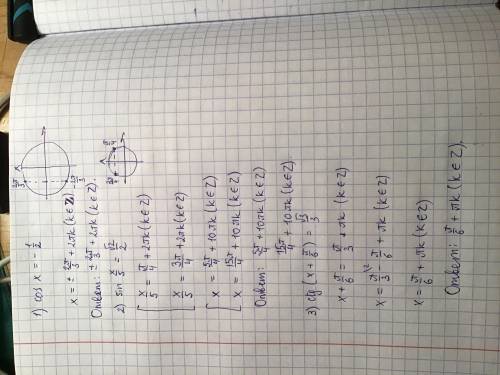 1) cos x = -1/2
2π/3
-2π/3
x
x = ± 2π/3 + 2πk (k∈Z).
Ответ: ± 2π/3 + 2πk (k∈Z).
2) sin x/5 = √2/2
[ x/5 = π/4 + 2πk (k∈Z)
x/5 = 3π/4 + 2πk (k∈Z)
[ x = 5π/4 + 10πk (k∈Z)
x = 15π/4 + 10πk (k∈Z)
Ответ: 5π/4 + 10πk (k∈Z)
15π/4 + 10πk (k∈Z)
3) ctg (x + π/6) = √3/3
x + π/6 = π/3 + πk (k∈Z)
x = π/3 \2 - π/6 + πk (k∈Z)
x = π/6 + πk (k∈Z)
Ответ: π/6 + πk (k∈Z).